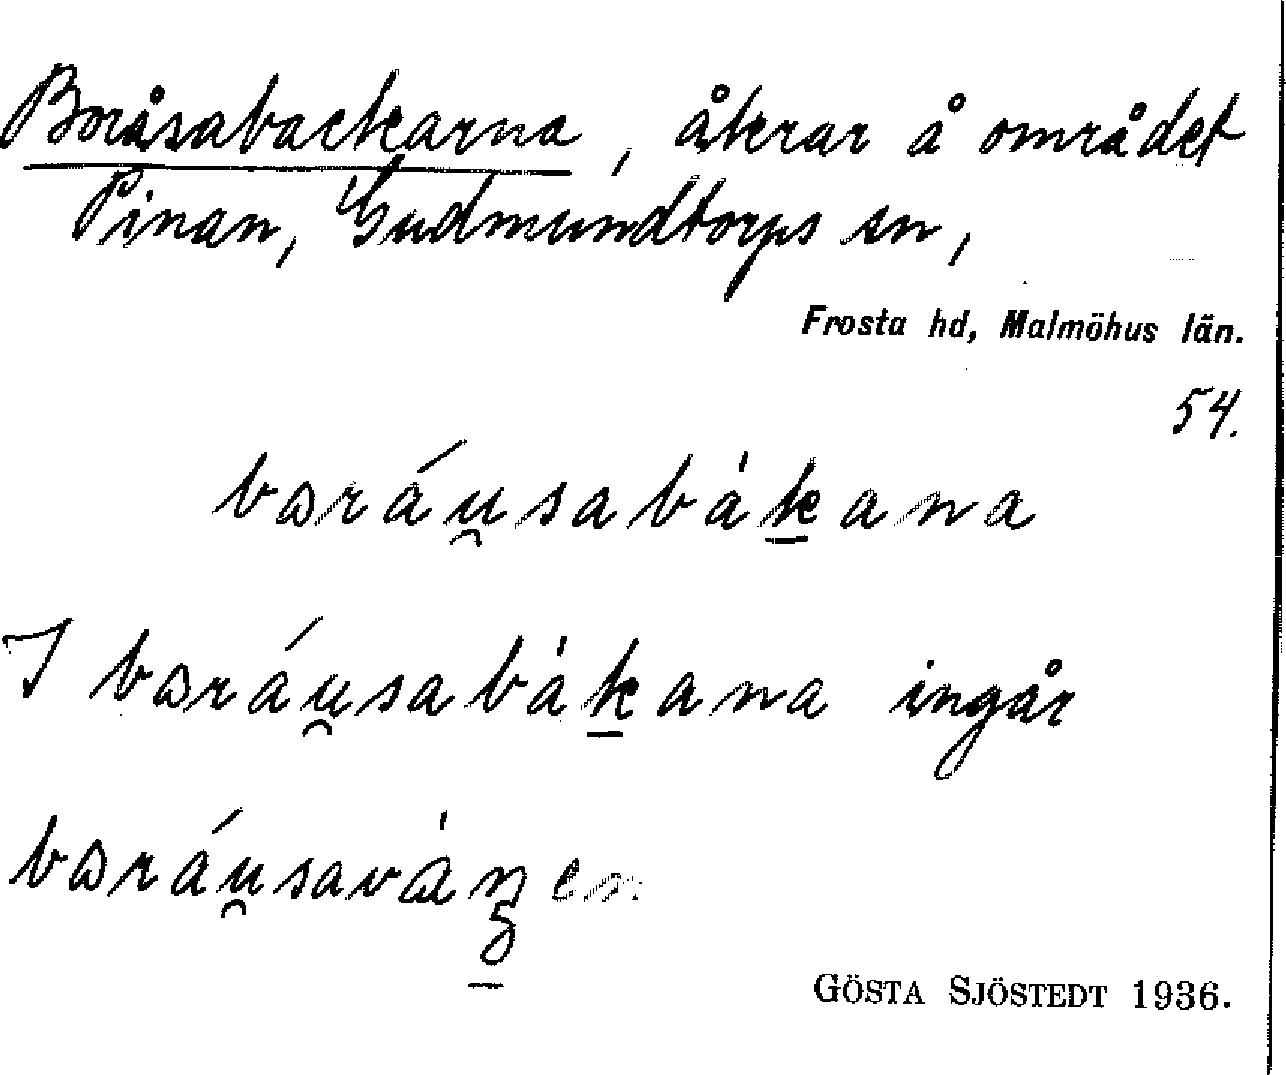 Boråsabackarna, åkrar å området
Pinan, Gudmundtorps sn,
Frosta hd, Malmöhus län.
54.
bɷráu̯sabák̲ana
I bɷráu̯sabák̲ana ingår
GÖSTA SJÖSTEDT 1936.